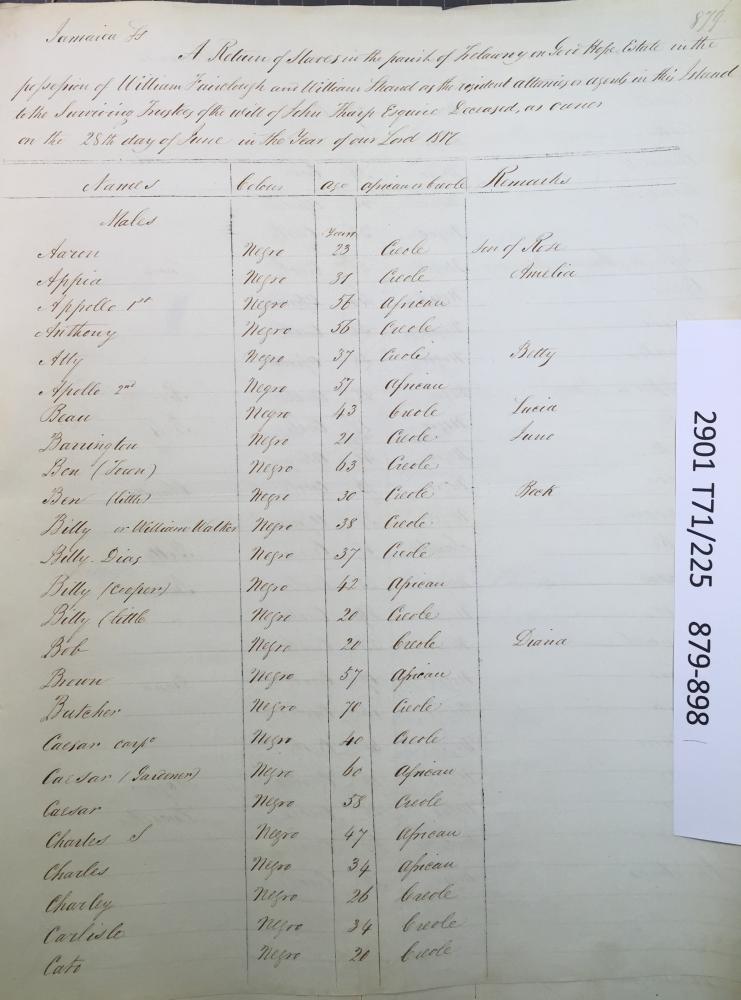 879
Jamaica Ss
A Return of Slaves in the parish of Trelawny on Good Hope Estate in the
possession of William Fairclough and William Shand as the resident attornies or agents in this Island
to the Surviving Trustees of the will of John Tharp Esquire Deceased, as owner
on the 28th day of June in the Year of our Lord 1817
Names Colour Age African or Creole Remarks
Males
Years
Aaron Negro 23 Creole Son of Rose
Appia Negro 31 Creole Amelia
Appollo 1st Negro 56 African
Anthony Negro 56 Creole
Ally Negro 37 Creole Betty
Apollo 2nd Negro 57 African
Beau Negro 43 Creole Lucia
Barrington Negro 21 Creole Juno
Ben (Town) Negro 63 Creole
Ben (little) Negro 30 Creole Beck
Billy or William Walker Negro 38 Creole
Billy Dias Negro 37 Creole
Billy (Cooper) Negro 42 African
Billy (little Negro 20 Creole
Bob Negro 20 Creole Diana
Brown Negro 57 African
Butcher Negro 70 Creole
Caesar carpr Negro 40 Creole
Caesar (Gardener) Negro 60 African
Caesar Negro 58 Creole
Charles S Negro 47 African
Charles Negro 34 African
Charley Negro 26 Creole
Carlisle Negro 34 Creole
Cato Negro 20 Creole
2901 T71/225 879-898